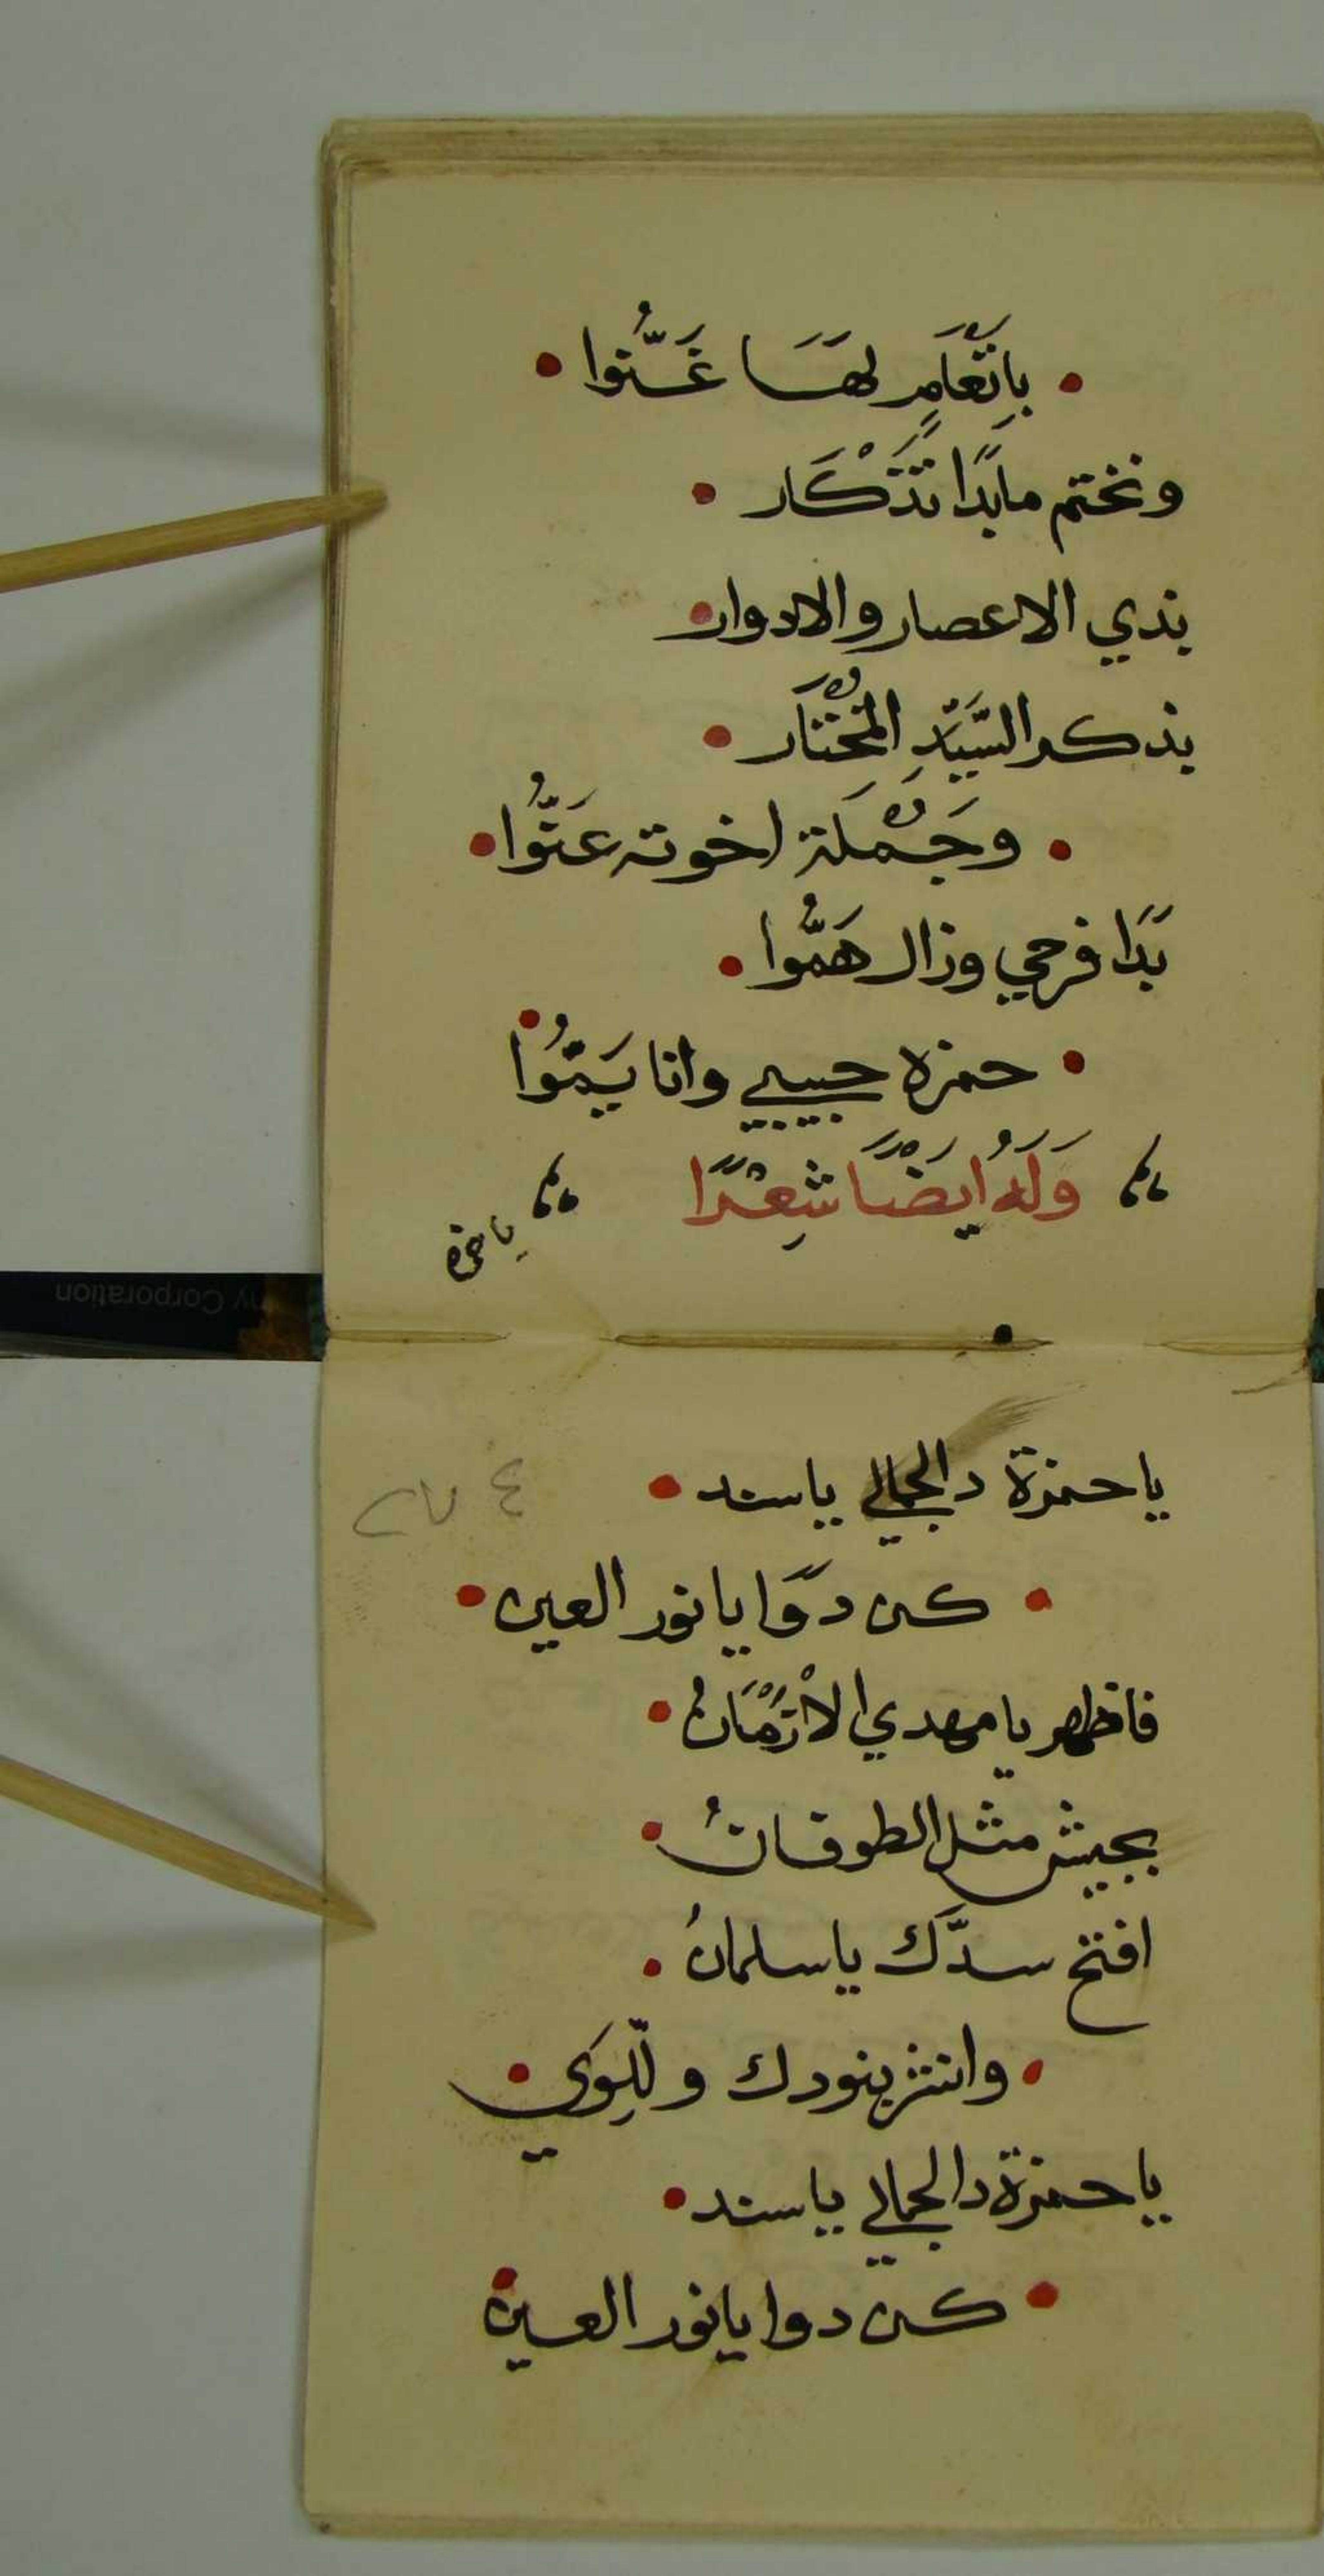 • بِانَّعَامٍ لهَا غَنُّوا •
ونختم مابدًا تَذْكَار •
بذي الاعصار والادوار •
بذكر السَّيّدِ المُخْتَار •
• وجُملَة اخوته عَنُّوا •
بَدَا فرحي وزال هَمُّوا •
• حمزه حبيبي وانا يَمُّوا •
وَلَهُ ايضًا شِعْرًا
ياحمزه
ياحمزة دالجمالي ياسند •
٢٧٤
• كن دوًا يانور العين •
فاظهر يامهدي الاْزْمَانُ •
بجيش مثل الطوفانُ •
افتح سدَّك ياسلمانُ •
• وانشر بنودك وللِّوَي •
ياحمزة دالجمالي ياسند •
• كن دوا يانور العين •
ny Corporation